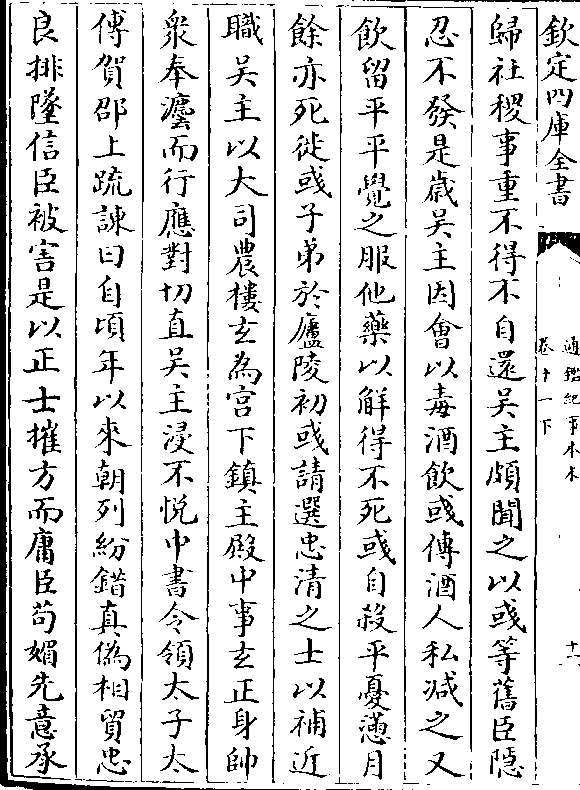 欽定四庫全書
通鑑紀事本末
卷十一下
十一
歸社稷事重不得不自還吳主頗聞之以彧等舊臣隱
忍不發是歲吳主因會以毒酒飲彧傳酒人私減之又
飲留平平覺之服他藥以解得不死彧自殺平憂懣月
餘亦死徙彧子弟於廬陵初彧請選忠清之士以補近
職吳主以大司農樓玄為宫下鎮主殿中事玄正身帥
衆奉灋而行應對切直吳主浸不悅中書令領太子太
傅賀邵上疏諫曰自頃年以來朝列紛錯真偽相貿忠
良排墜信臣被害是以正士摧方而庸臣苟媚先意承